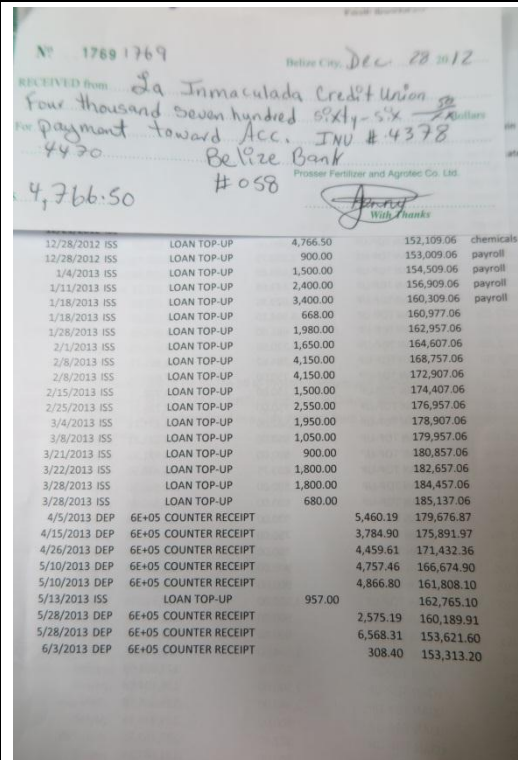 Nº 1769 1769
Belize City, Dec 28 2012
RECEIVED from La Inmaculada Credit Union
Four thousand seven hundred sixty-six 50/ Dollars
For payment toward Acc. INV # 4378
4470 Belize Bank
Prosser Fertilizer and Agrotec Co. Ltd.
4,766.50 #058
With Thanks
12/28/2012 ISS LOAN TOP-UP 4,766.50 152,109.06 chemicals
12/28/2012 ISS LOAN TOP-UP 900.00 153,009.06 payroll
1/4/2013 ISS LOAN TOP-UP 1,500.00 154,509.06 payroll
1/11/2013 ISS LOAN TOP-UP 2,400.00 156,909.06 payroll
1/18/2013 ISS LOAN TOP-UP 3,400.00 160,309.06 payroll
1/18/2013 ISS LOAN TOP-UP 668.00 160,977.06
1/28/2013 ISS LOAN TOP-UP 1,980.00 162,957.06
2/1/2013 ISS LOAN TOP-UP 1,650.00 164,607.06
2/8/2013 ISS LOAN TOP-UP 4,150.00 168,757.06
2/8/2013 ISS LOAN TOP-UP 4,150.00 172,907.06
2/15/2013 ISS LOAN TOP-UP 1,500.00 174,407.06
2/25/2013 ISS LOAN TOP-UP 2,550.00 176,957.06
3/4/2013 ISS LOAN TOP-UP 1,950.00 178,907.06
3/8/2013 ISS LOAN TOP-UP 1,050.00 179,957.06
3/21/2013 ISS LOAN TOP-UP 900.00 180,857.06
3/22/2013 ISS LOAN TOP-UP 1,800.00 182,657.06
3/28/2013 ISS LOAN TOP-UP 1,800.00 184,457.06
3/28/2013 ISS LOAN TOP-UP 680.00 185,137.06
4/5/2013 DEP 6E+05 COUNTER RECEIPT 5,460.19 179,676.87
4/15/2013 DEP 6E+05 COUNTER RECEIPT 3,784.90 175,891.97
4/26/2013 DEP 6E+05 COUNTER RECEIPT 4,459.61 171,432.36
5/10/2013 DEP 6E+05 COUNTER RECEIPT 4,757.46 166,674.90
5/10/2013 DEP 6E+05 COUNTER RECEIPT 4,866.80 161,808.10
5/13/2013 ISS LOAN TOP-UP 957.00 162,765.10
5/28/2013 DEP 6E+05 COUNTER RECEIPT 2,575.19 160,189.91
5/28/2013 DEP 6E+05 COUNTER RECEIPT 6,568.31 153,621.60
6/3/2013 DEP 6E+05 COUNTER RECEIPT 308.40 153,313.20